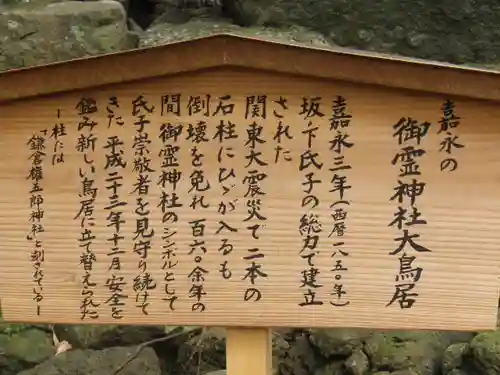 嘉永の
御霊神社大鳥居
嘉永三年(西暦一八五〇年)
坂ノ下氏子の総力で建立
された
関東大震災で二本の
石柱にひゞが入るも
倒壊を免れ 百六〇余年の
間 御霊神社のシンボルとして
氏子崇敬者を見守り続けて
きた 平成二十三年十二月 安全を
鑑み新しい鳥居に立て替えられた
ー柱には
「鎌倉権五郎神社」と刻されているー